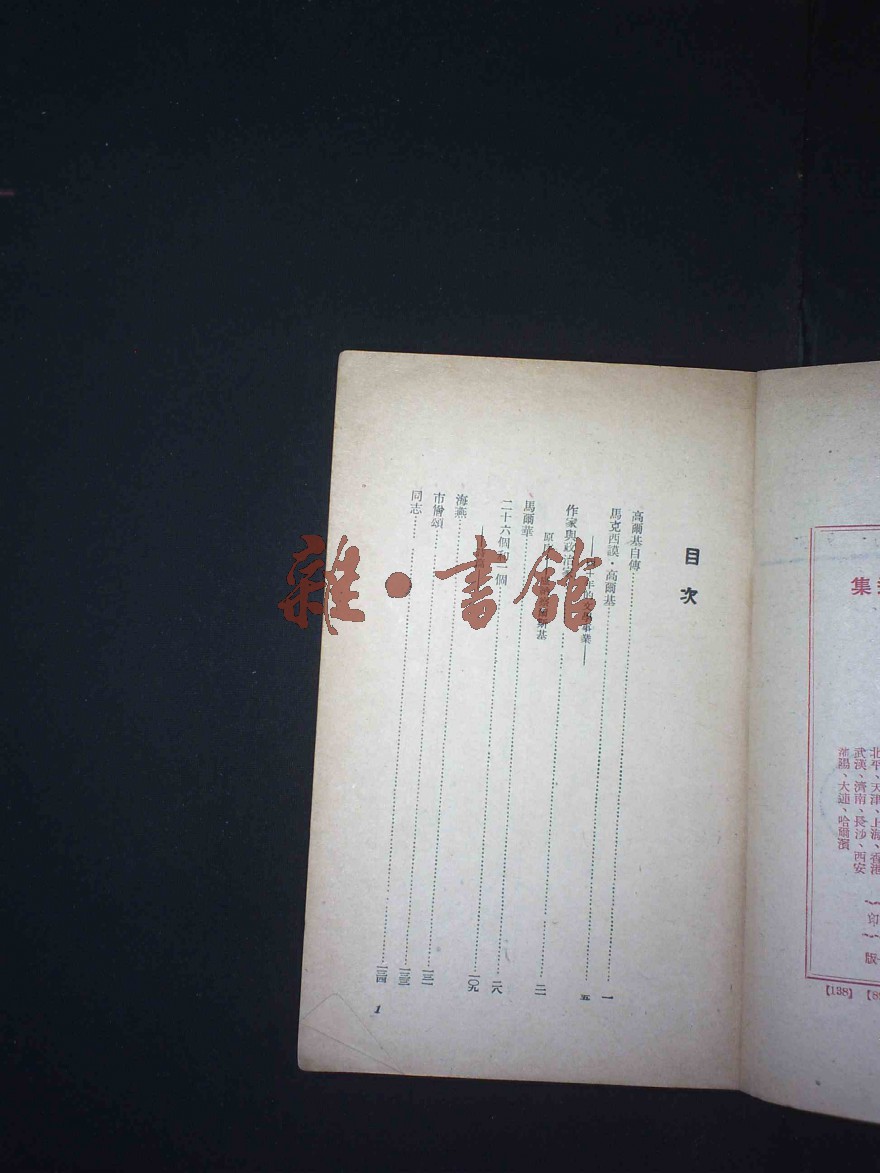 集
北平、天津、上海、香港
武漢、濟南、長沙、西安
瀋陽、大連、哈爾濱
印
版
【138】
目次
高爾基自傳……一
馬克西謨·高爾基……五
年的文學事業——
作家與政治家……二一
馬爾華……二八
二十六個和一個……一〇九
海燕……一三一
市儈頌……一三三
同志……一三四
1
雜·書館